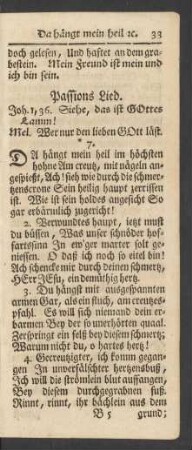 Da hängt mein heil ꝛc. 33
doch gelesen, Und haftet an dem gra-
bestein. Mein Freund ist mein und
ich bin sein.
Passions Lied.
Joh. 1, 36. Siehe, das ist GOttes
Lamm!
Mel. Wer nur den lieben GOtt läst.
* 7. *
DA hängt mein heil im höchsten
hohne Am creutz, mit nägeln an-
gespießt, Ach! sieh wie durch die schmer-
tzenscrone Sein heilig haupt zerrissen
ist. Wie ist sein holdes angesicht So
gar erbärmlich zugericht!
2. Verwundtes haupt, jetzt must
du büssen, Was unser schnöder hof-
fartssinn In ew'ger marter solt ge-
niessen. O daß ich noch so eitel bin!
Ach schencke mir durch deinen schmertz,
HErr JEsu, ein demüthig hertz.
3. Du hängst mit ausgespannten
armen Gar, als ein fluch, am creutzes-
pfahl. Es will sich niemand dein er-
barmen Bey der so unerhörten quaal.
Zerspringt ein felß bey diesem schmertz;
Warum nicht du, o hartes hertz!
4. Gecreutzigter, ich komm gegan-
gen In unverfälschter hertzensbuß,
Ich will die strömlein blut auffangen,
Bey diesem durchgegrabnen fuß.
Rinnt, rinnt, ihr bächlein aus dem
B 5 grund;